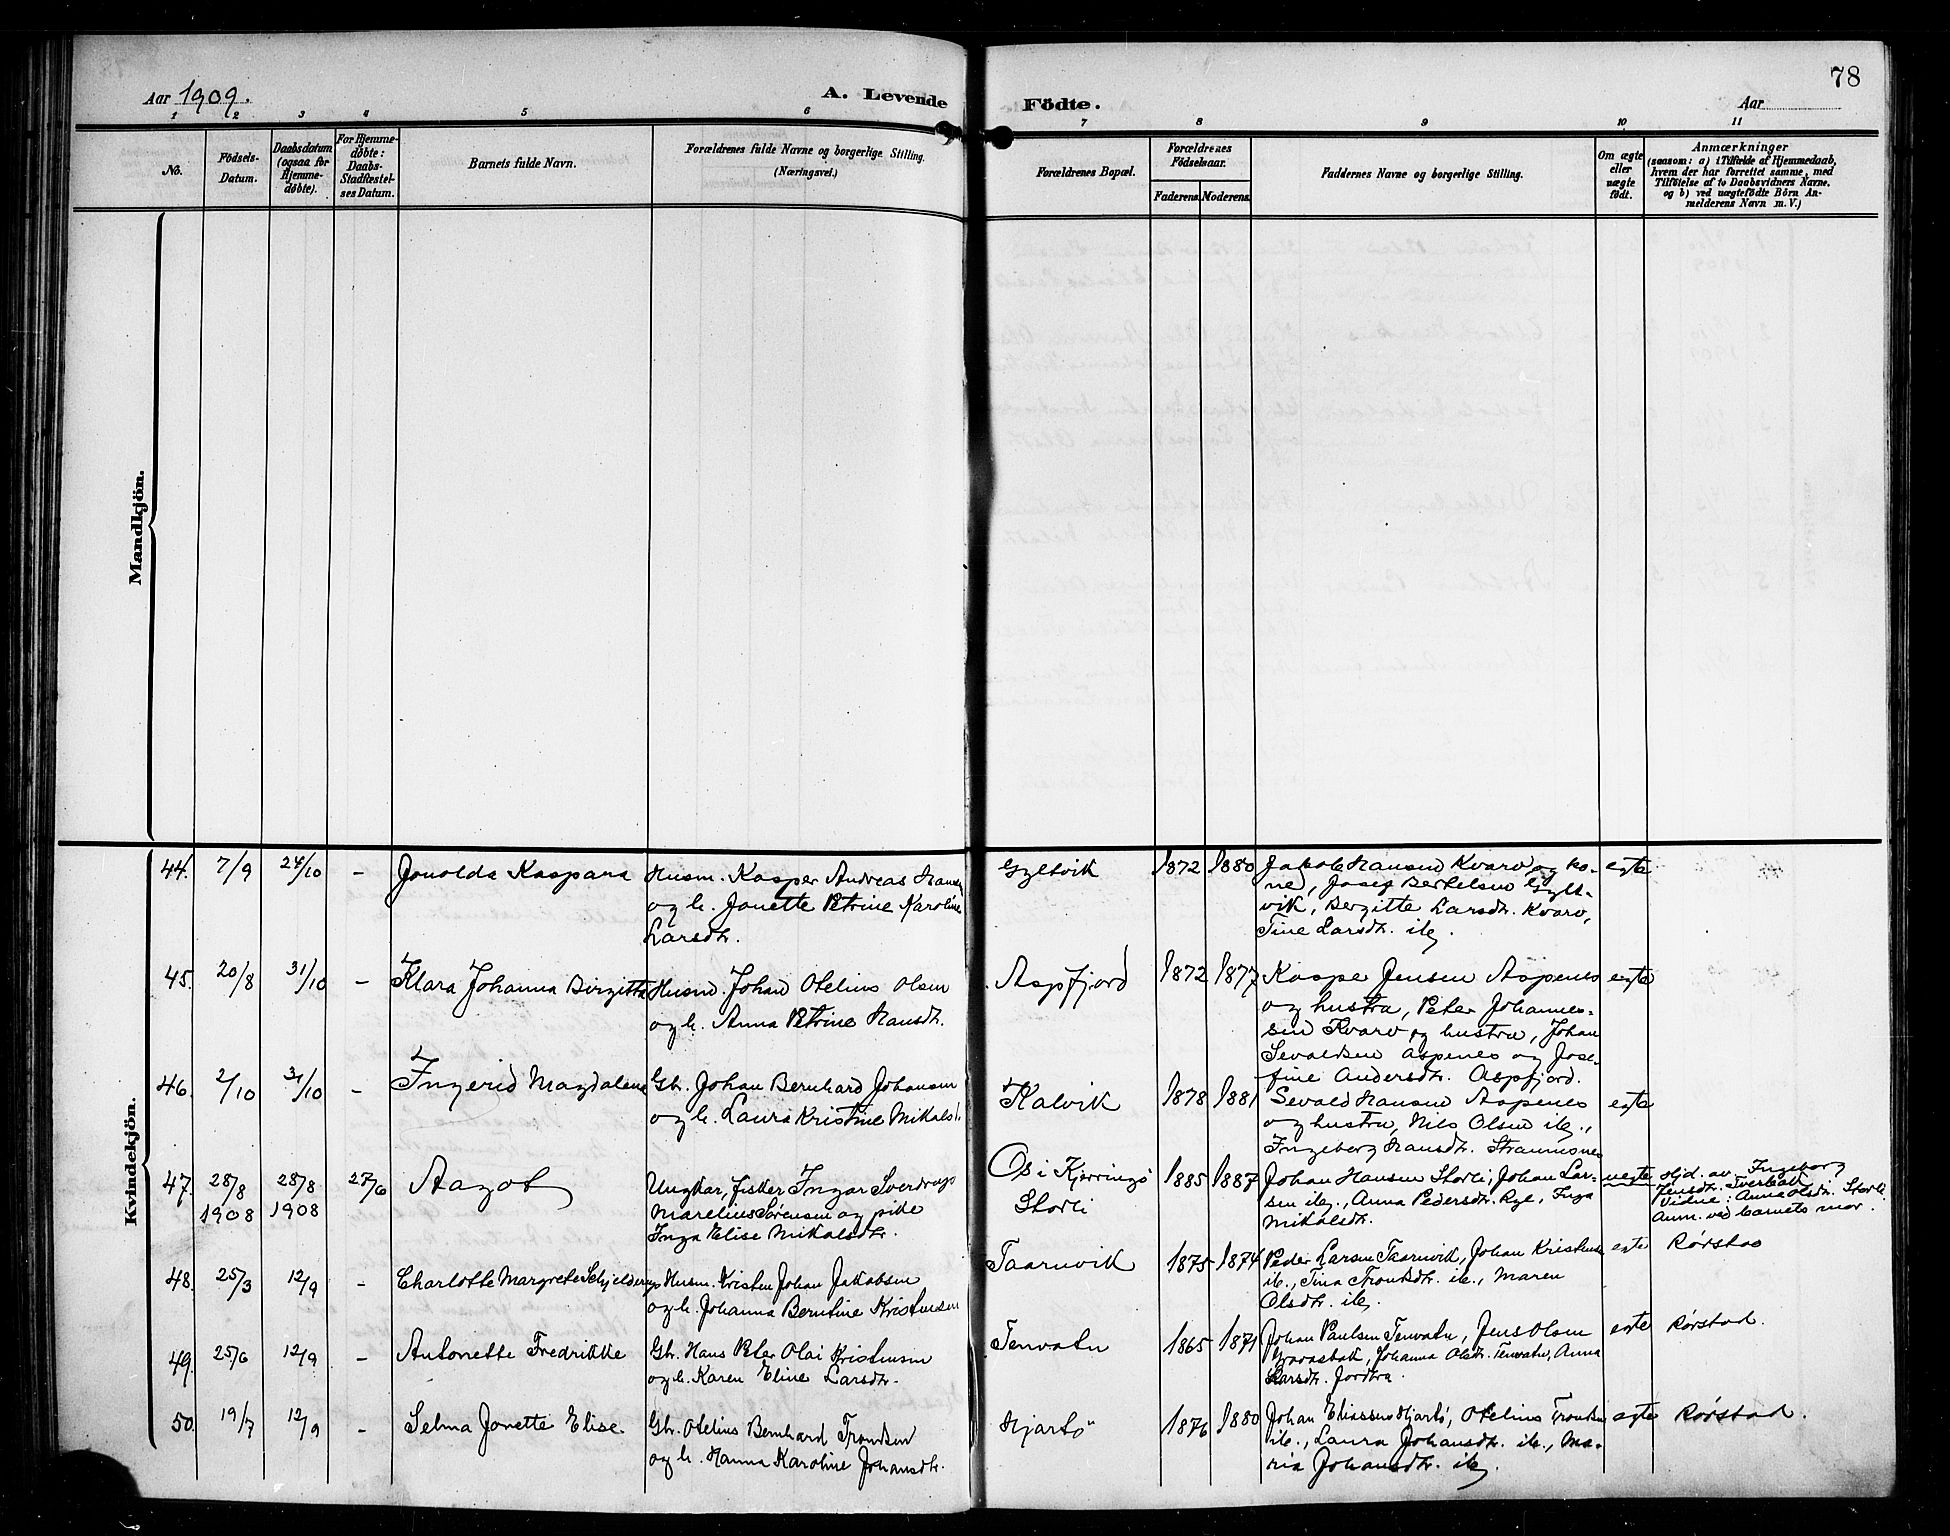 78
Aar 1909.
A. Levende Födte.
Aar
1 2 3 4 5 6 7 8 9 10 11
No.
Födsels-
Datum.
Daabsdatum
(ogsaa for
Hjemme-
døbte).
For Hjemme-
døbte:
Daabs-
Stadfæstel-
ses Datum.
Barnets fulde Navn.
Forældrenes fulde Navne og borgerlige Stilling.
(Næringsvei.)
Forældrenes Bopæl.
Forældrenes
Födselsaar.
Faderens.
Moderens.
Faddernes Navne og borgerlige Stilling.
Om ægte
eller
uægte
født.
Anmærkninger
(saasom: a) i Tilfælde af Hjemmedaab,
hvem der har forrettet samme, med
Tilföielse af to Daabsvidners Navne,
og b) ved uægtefödte Börn An-
melderens Navn m. V.)
Mandkjön.
Kvindekjön.
44. 7/9 24/10 - Jonolda Kaspara
Husm. Kasper Andreas Hansen
og h. Jonette Petrine Karoline
Larsdtr.
Gyltvik 1872 1880
Jakob Hansen Kvarv og ko-
ne, Josef Bertelsen Gylt-
vik, Bergitte Larsdtr. Kvarv,
Tine Larsdtr. ib.
egte
45. 20/8 31/10 - Klara Johanna Birgitta
Husm. Johan Otelius Olsen
og h. Anna Petrine Hansdtr.
Aspfjord 1872 1877
Kasper Jensen Aspenes
og hustru, Peter Johannes-
sen Kvarv og hustru, Johan
Sevaldsen Aspenes og Jose-
fine Andersdtr. Aspfjord.
egte
46. 2/10 31/10 - Ingerid Magdalena
Gbr. Johan Bernhard Johansen
og h. Laura Kristine Mikalsd.
Kalvik 1878 1881
Sevald Hansen Aspenes
og hustru, Nils Olsen ib.,
Ingeborg Hansdtr. Straumsnes
egte
47. 28/8 1908 28/8 1908 27/6 Aagot
Ungkar, fisker Ingar Sverdrup
Marelius Sørensen og pike
Inga Elise Mikalsdtr.
Os i Kjerringø
Storli
1885 1887
Johan Hansen Storli, Johan Lar-
sen ib., Anna Pedersdtr. Rye, Inga
Mikalsdtr.
uegte
Hjd. av Ingeborg
Jensdtr. Tverbakk
Vidne: Anna Olsdtr. Storli.
Anm. ved barnets mor.
48. 25/3 12/9 - Charlotte Margrete Schjelderup
Husm. Kristen Johan Jakobsen
og h. Johanna Berntine Kristensen
Taarnvik 1875 1874
Peder Larsen Taarnvik, Johan Kristensen
ib., Tina Trondsdtr. ib., Maren
Olsdtr. ib.
egte Rørstad
49. 25/6 12/9 - Antonette Fredrikke
Gbr. Hans Peter Olai Kristensen
og h. Karen Eline Larsdtr.
Tenvatn 1865 1871
Johan Paulsen Tenvatn, Jens Olsen
Johanna Olsdtr. Tenvatn, Anna
Larsdtr.
egte Rørstad.
50. 19/7 12/9 - Selma Jonette Elise.
Gbr. Otelius Bernhard Trondsen
og h. Hanna Karoline Johansdtr.
Hjartö 1876 1880
Johan Eliassen Hjartö, Otelius Trondsen
ib., Laura Johansdtr. ib., Ma-
ria Johansdtr. ib.
egte Rørstad.